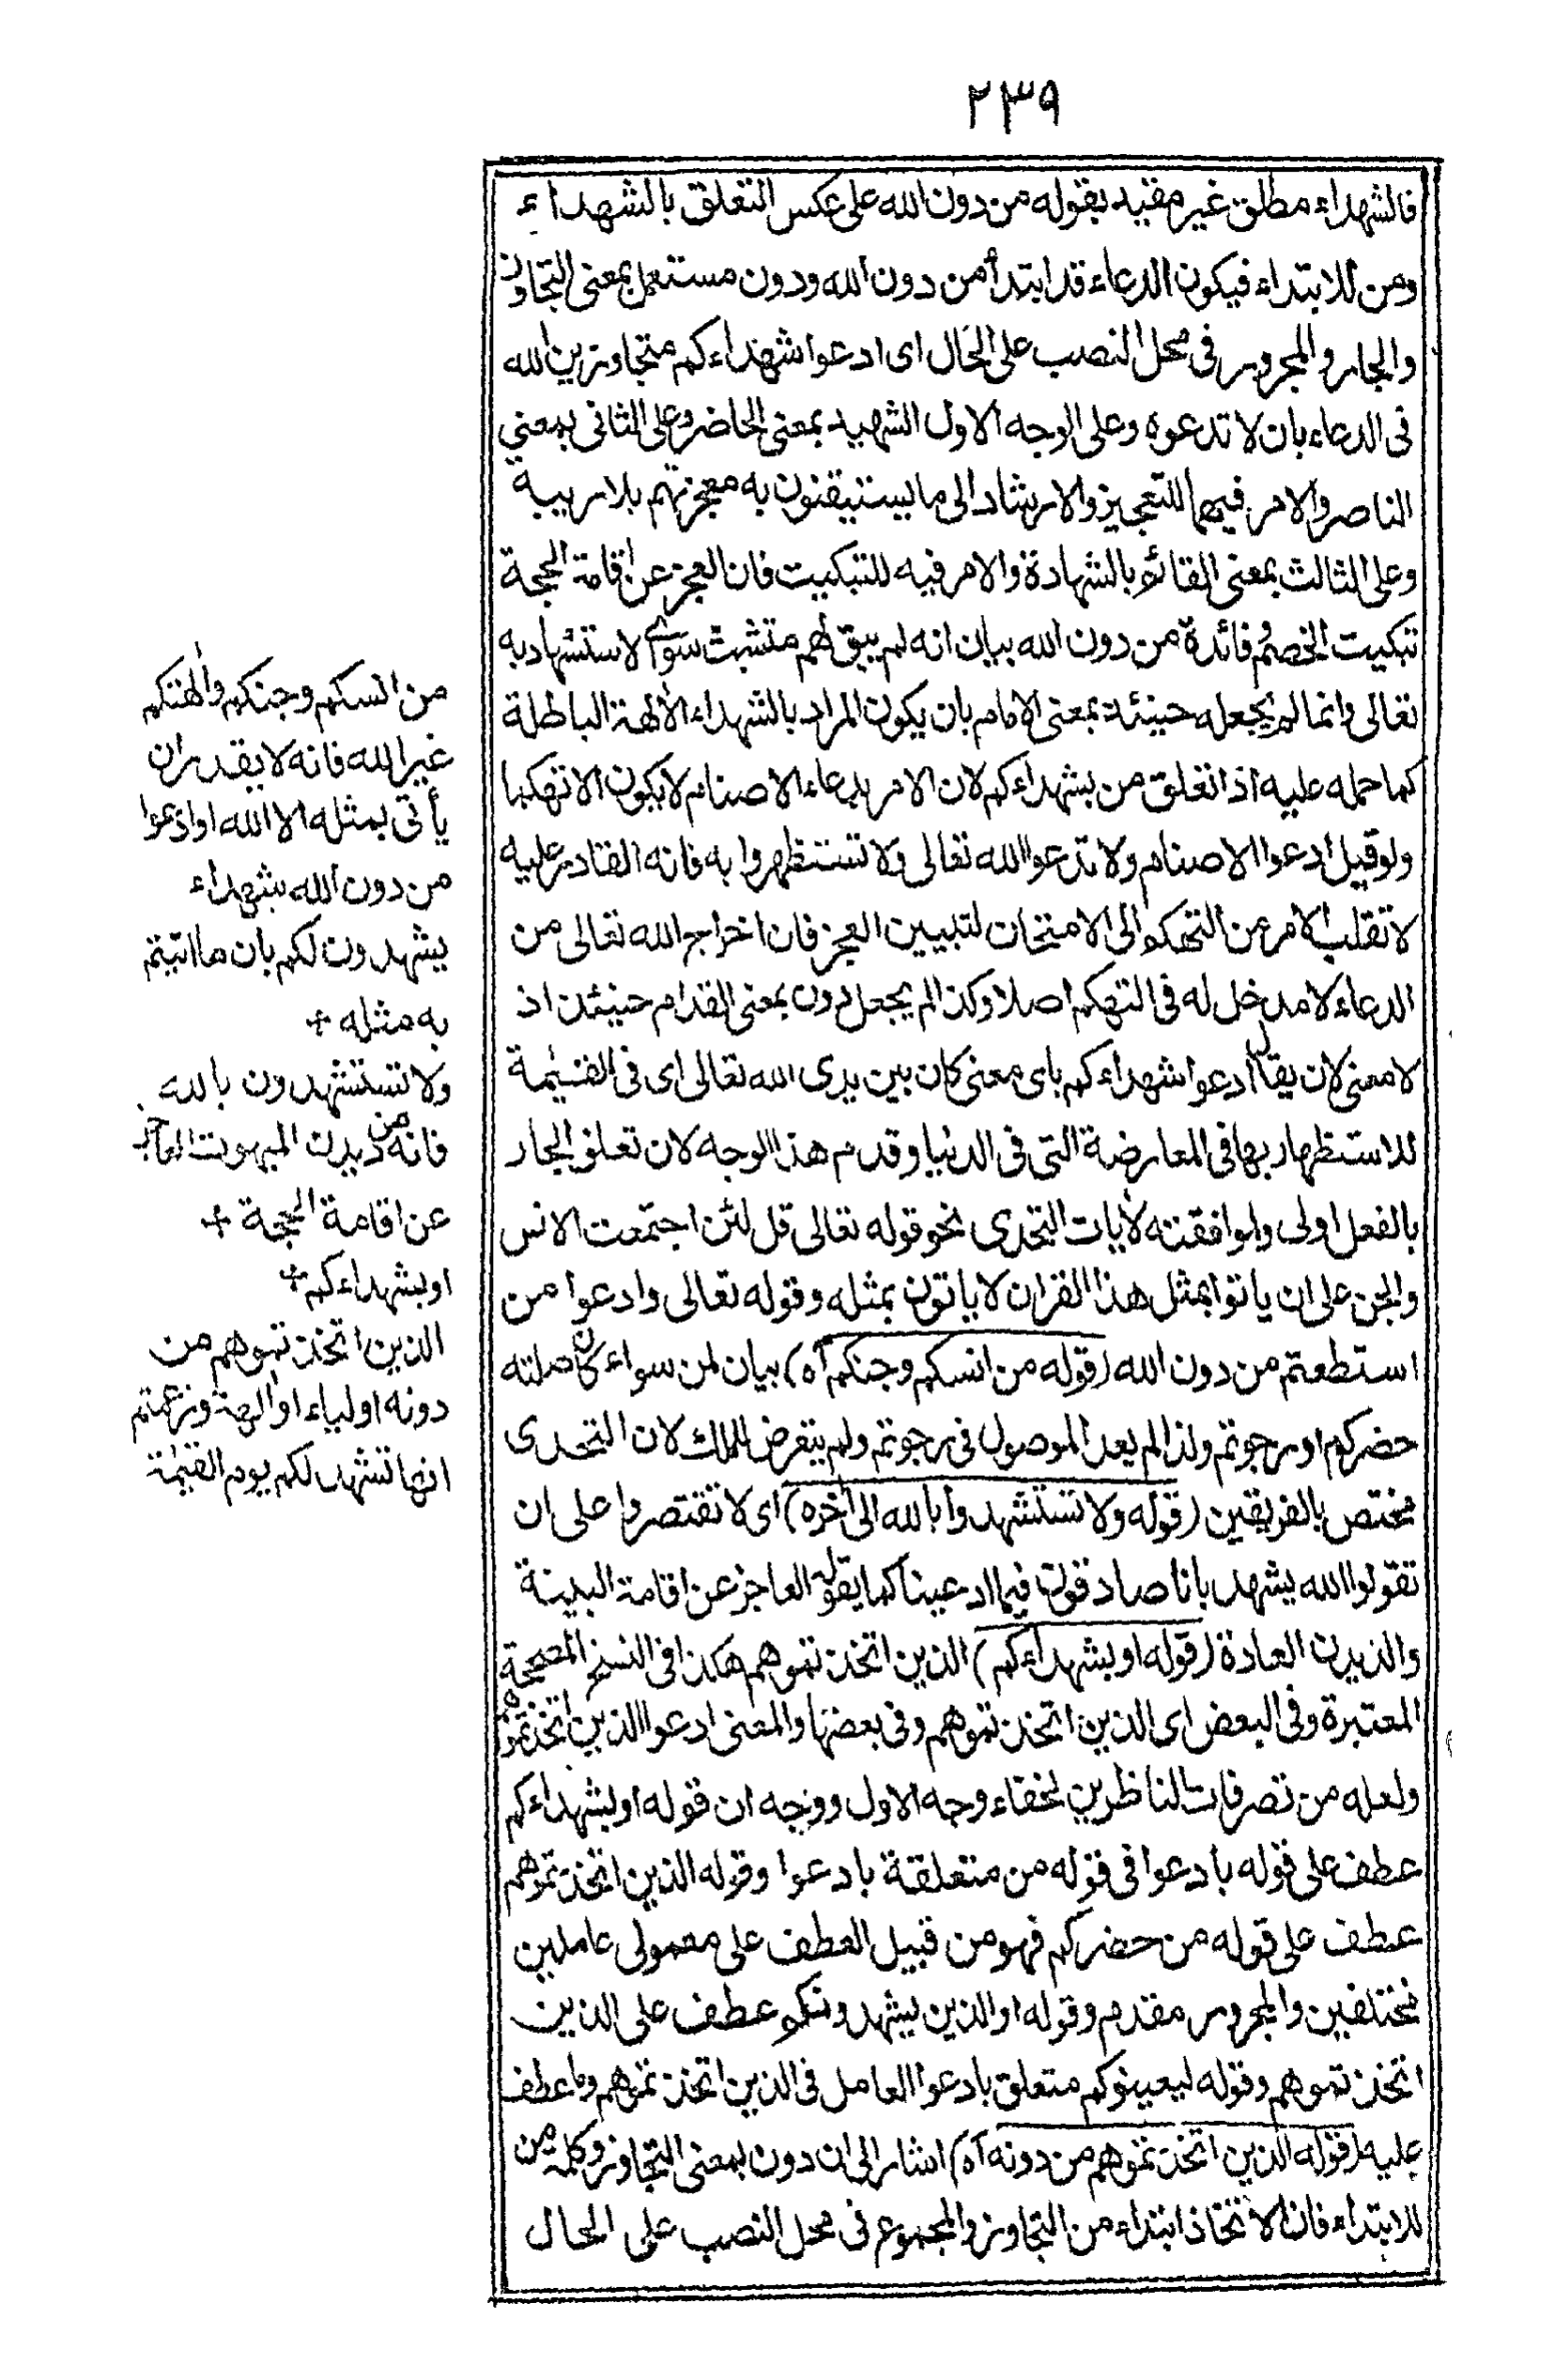 ٢٣٩
فالشهداء مطلق غير مقيد بقوله من دون الله على عكس التعلق بالشهداء
ومن للابتداء فيكون الدعاء قد ابتدأ من دون الله ودون مستعمل بمعنى التجاوز
والجار والمجرور فى محل النصب على الحال اى ادعوا شهداءكم متجاوزين الله
فى الدعاء بان لا تدعوه وعلى الوجه الاول الشهيد بمعنى الحاضر وعلى الثانى بمعنى
الناصر والامر فيهما للتعجيز والارشاد الى ما يستيقنون به معجزتهم بلا ريبة
وعلى الثالث بمعنى القائم بالشهادة والامر فيه للتبكيت فان العجز عن اقامة الحجة
تبكيت الخصم فائدة من دون الله بيان انه لم يبق لهم متشبث سوى الاستشهاد به
تعالى وانما لم يجعله حينئذ بمعنى الامام بان يكون المراد بالشهداء الألهة الباطلة
كما حمله عليه اذا تعلق من بشهداءكم لان الامر بدعاء الاصنام لا يكون الا تهكما
ولو قيل ادعوا الاصنام ولا تدعوا الله تعالى ولا تستظهروا به فانه القادر عليه
لا تقلب الامر من التهكم الى الامتحان لتبيين العجز فان اخراج الله تعالى من
الدعاء لا مدخل له فى التهكم اصلا وكذا لم يجعل دون بمعنى القدام حينئذ اذ
لا معنى لان يقال ادعوا شهداءكم باى معنى كان بين يدى الله تعالى اى فى القيٰمة
للاستظهار بها فى المعارضة التى فى الدنيا وقدم هذا الوجه لان تعلق الجار
بالفعل اولى ولموافقته لأيات التحدى نحو قوله تعالى قل لئن اجتمعت الانس
والجن على ان ياتوا بمثل هذا القرأن لا ياتون بمثله وقوله تعالى وادعوا من
استطعتم من دون الله (قوله من انسكم وجنكم آه) بيان لمن سواء كان صلته
حضركم او رجوتم ولذا لم يعد الموصول فى رجوتم ولم يتعرض للملك لان التحدى
مختص بالفريقين (قوله ولا تستشهدوا بالله الى أخره) اى لا تقتصروا على ان
تقولوا الله يشهد بانا صادقون فيما ادعينا كما يقوله العاجز عن اقامة البينة
والديدن العادة (قوله او بشهداءكم) الذين اتخذتموهم هكذا فى النسخ المصححة
المعتبرة وفى البعض اى الذين اتخذتموهم وفى بعضها والمعنى ادعوا الذين اتخذتموهم
ولعله من تصرفات الناظرين لخفاء وجه الاول ووجه ان قوله او بشهداءكم
عطف على قوله بادعوا فى قوله من متعلقة بادعوا وقوله الذين اتخذتموهم
عطف على قوله من حضركم فهو من قبيل العطف على معمولى عاملين
مختلفين والمجرور مقدم وقوله او الذين يشهدونكم عطف على الذين
اتخذتموهم وقوله ليعينوكم متعلق بادعوا العامل فى الذين اتخذتموهم وما عطف
عليه (قوله الذين اتخذتموهم من دونه آه) اشار الى ان دون بمعنى التجاوز وكلمة من
للابتداء فان الاتخاذ ابتداء من التجاوز والمجموع فى محل النصب على الحال
من انسكم وجنكم وألهتكم
غير الله فانه لا يقدر ان
يأتى بمثله الا الله او ادعوا
من دون الله شهداء
يشهدون لكم بان ما اتيتم
به مثله +
ولا تستشهدون بالله
فانه من ديدن المبهوت العاجز
عن اقامة الحجة +
او بشهداءكم +
الذين اتخذتموهم من
دونه اولياء او ألهة وزعمتم
انها تشهد لكم يوم القيٰمة